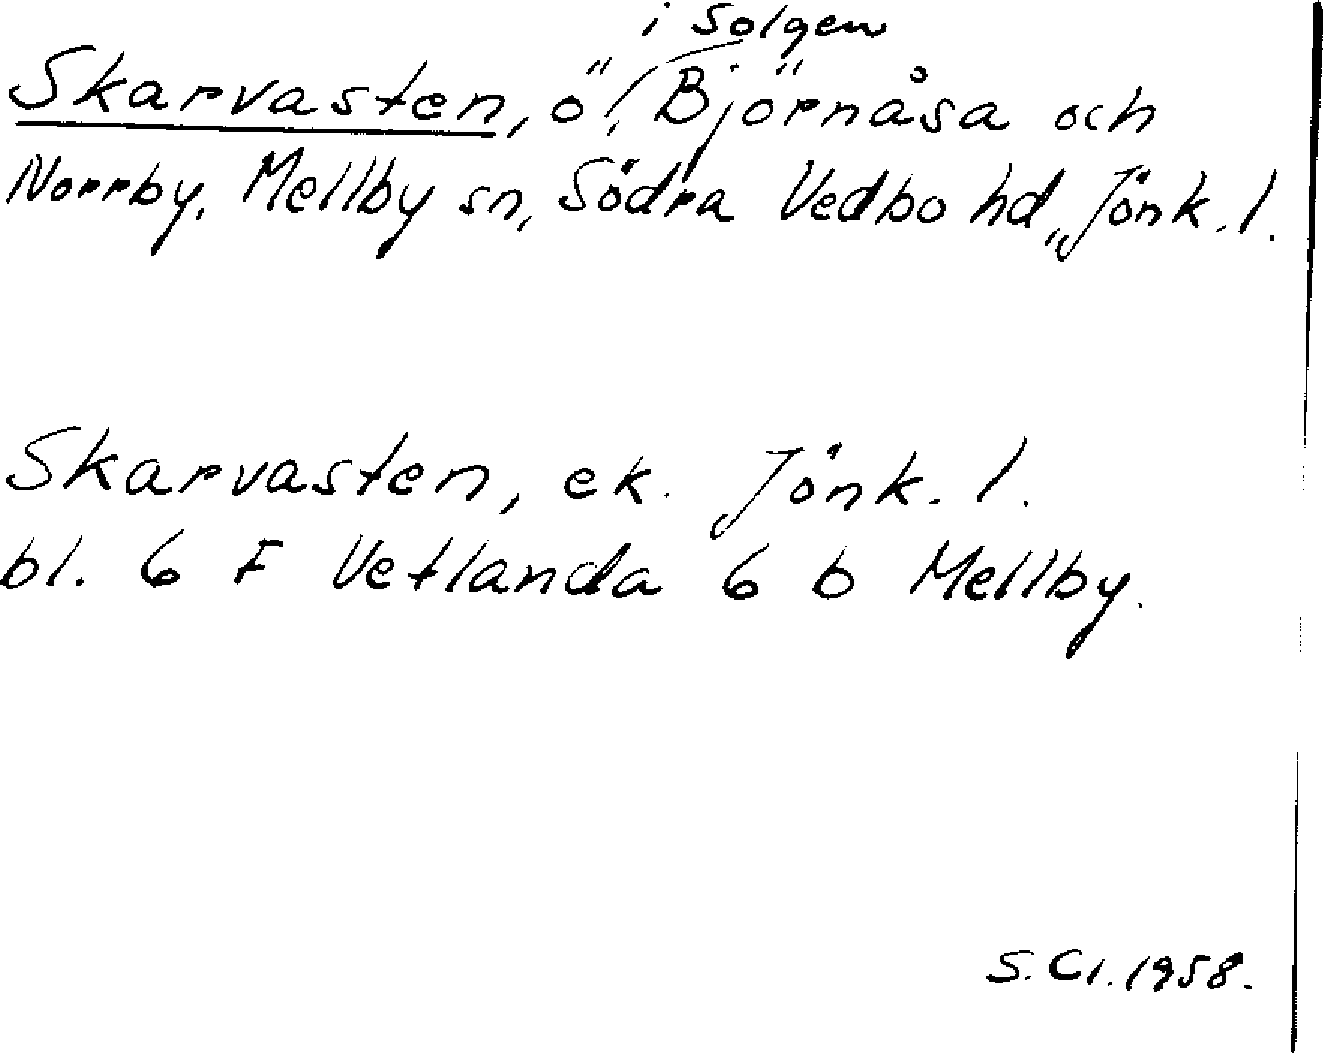 i Solgen
Skarvasten, ö, Björnåsa och
Norrby, Mellby sn, Södra Vedbo hd, Jönk. l.
Skarvasten, ek. Jönk. l.
bl. 6 F Vetlanda 6 b Mellby.
S. Cl. 1958.